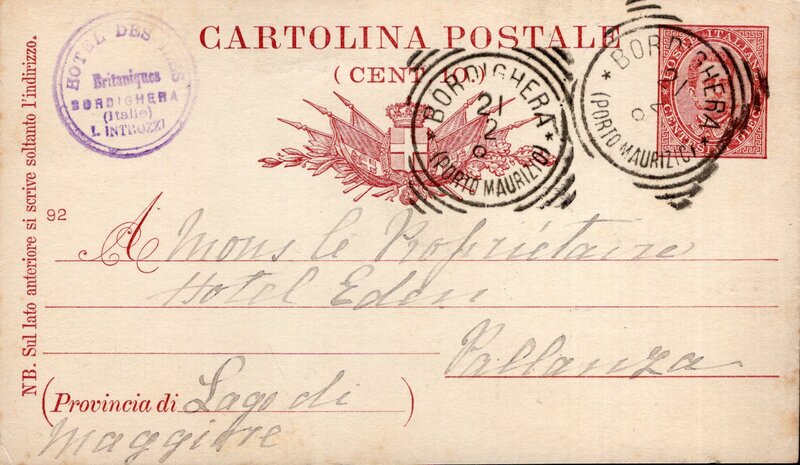 CARTOLINA POSTALE
(CENT. 10)
HOTEL DES ILES
Britaniques
BORDIGHERA
(Italie)
I. INTROZZI
BORDIGHERA
21
2
(PORTO MAURIZIO)
BORDIGHERA
(PORTO MAURIZIO)
POSTE ITALIANE
CENT. DIECI
92
A Mons le Propriétaire
Hotel Eden
Pallanza
(Provincia di Lago di )
Maggiore
NB. Sul lato anteriore si scrive soltanto l'indirizzo.